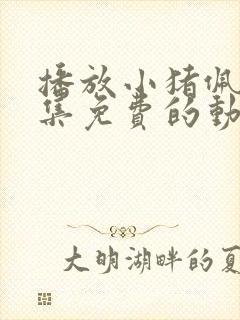 播放小猪佩
集免费的动
大明湖畔的夏